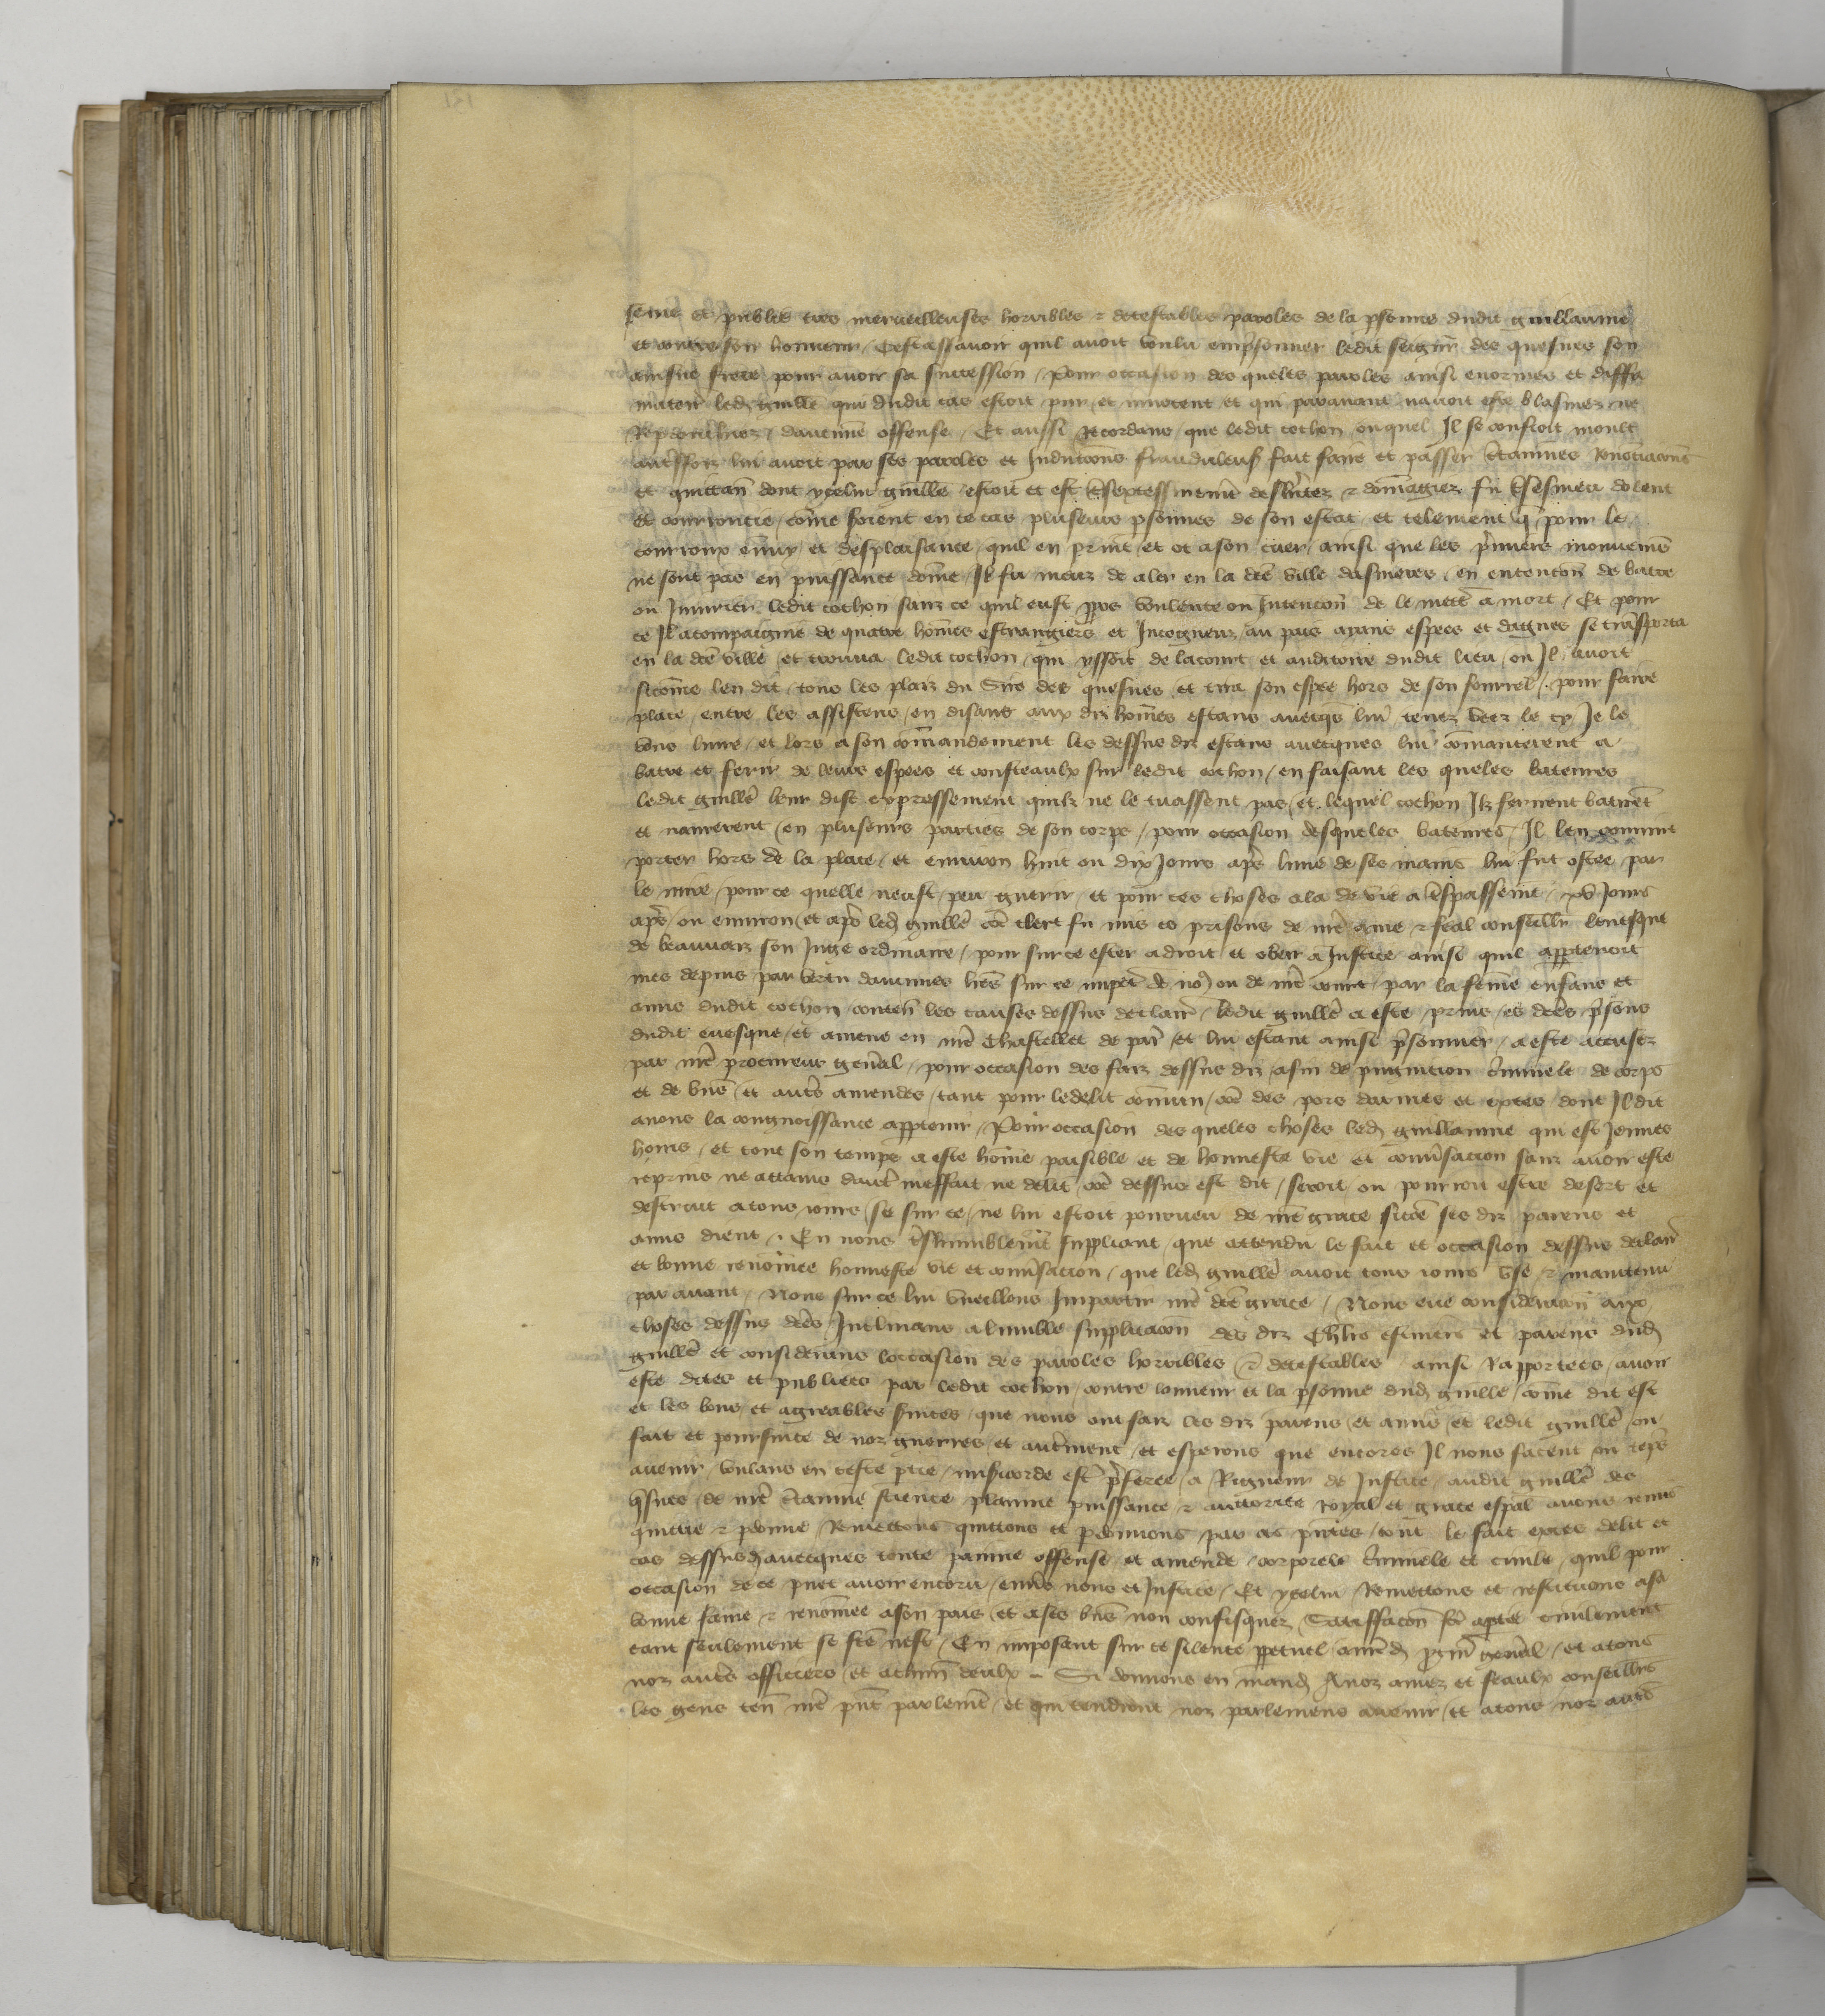 semé et publié tres merueilleuses horribles ⁊ detestables paroles de la psonne dudit guillaume
et contre son honneur / Cestassauoir quil auoit voulu empsonner ledit seignr des quesnes son
ainsne frere pour auoir sa succession / Pour occasion des queles paroles ainsi enormes et diffa
matoir led guille qui dudit cas estoit pur et innocent et qui parauant nauoit esté blasmez ne
daucune offense / Et aussi Recordans que ledit cothon ouquel Il se confioit moult
lui auoit par ses paroles et Inductions frauduleuses fait faire et passer ctaines Renonciacions
et quittan dont ycelui guille estoit et est ⁊ domagiez fu dolent
et courroucie come soient en ce cas pluseurs psonnes de son estat et telement q pour le
courroux ennuy et desplaisance quil en print et ot a son cuer ainsi que les pmiers mouuemens
ne sont pas en puissance dome Il fu meuz de aler en la dce ville dasnieres en entencion de batre
ou Iniurier ledit cothon sanz ce quil eust ppos voulente ou Intencion de le mettre a mort / Et pour
ce Il acompaigné de quatre homes estrangiers et Incogneuz au pais aians espees et dagues se transporta
en la dce ville et trouua ledit cothon qui yssoit de lacourt et auditoire dudit lieu ou Il auoit
sicome len dit tous les plaiz du Sire des quesnes et tira son espee hors de son fourrel pour faire
place entre les assistens en disant aux diz homes estans auecqs lui tenez veez le cy Je le
vous liure et lors a son comandement les dessus diz estans auecques lui comancerent a
batre et ferir de leurs espees et cousteaulx sur ledit cothon / en faisant les queles bateures
ledit guille leur dist expressement quilz ne le tuassent pas et lequel cothon Ilz ferirent batirent
et naurerent en pluseurs parties de son corps / pour occasion desqueles bateures Il len conuint
porter hors de la place et enuiron huit ou dix Jours apres lune de ses mains lui fut ostee par
le mire pour ce quelle neust peu guerir et pour ces choses ala de vie a tspassemt xv Jours
apres ou enuiron et apres led guille coe clerc fu mis es prisons de nre ame ⁊ feal conseillr leuesque
de beauuaiz son Juge ordinaire pour sur ce ester a droit et obeir a Justice ainsi quil appartenoit
mes depuis par vertu daucunes lres sur ce impetr de nous ou de nre court par la feme enfans et
amis dudit cothon conten les causes dessus declair ledit guille a esté prins es dces psons
dudit euesque et amene en nre Chastellet de par et lui estant ainsi psonnier a esté accusez
par nre procureur general pour occasion des faiz dessus diz afin de pugnicion criminele de corps
et de biens et autres amendes tant pour le delit comun coe des pors darmes et exces dont Il dit
a nous la congnoissance appartenir / Pour occasion des queles choses led guillaume qui est Jeunes
homs et tout son temps a este home paisible et de honneste vie et conuersacion sanz auoir esté
reprins ne attains dautre meffait ne delit coe dessus est dit seroit ou pourroit estre desert et
destruit a tous iours se sur ce ne lui estoit pourueu de nre grace sicoe ses diz parens et
amis dient / En nous tshumblemt suppliant que attendu le fait et occasion dessus declair
et bonne renomee honneste vie et conuersacion que led guille auoit tous iours vse ⁊ maintenu
par auant / Nous sur ce lui vueillons Impartir nre dce grace / Nous eue consideracion aux
choses dessus dces Inclinans a lumble supplicacion des diz Chlrs escuiers et parens dud
guille et considerans loccasion des paroles horribles ⁊ detestables ainsi Rapportees auoir
esté dites et publiees par ledit cothon contre lonneur et la psonne dud guille come dit est
et les bons et agreables seruices que nous ont faiz les diz parens et amis et ledit guille ou
fait et poursuite de noz guerres et autrement et esperons que encores Il nous facent ou temps
auenir voulans en ceste ptie misericorde estre pferee a Rigueur de Justice audit guille des
qsnes de nre ctainne science plainne puissance ⁊ auctorite royal et grace espal auons remis
quittie ⁊ pdonné Remettons quittons et pdonnons par ces pntes tout le fait exces delit et
cas dessusd auecques toute painne offense et amende corporele criminele et ciuile quil pour
occasion de ce puet auoir encoru enuers nous et Justice / Et ycelui Remettons et restituons a sa
bonne fame ⁊ renomee a son pais et a ses biens non confisquez / Satiffacion fce a ptie ciuilement
tant seulement se fce nest / En imposant sur ce silence ppetuel a nre d pcur general et a tous
noz autres officiers et a chun deulx – Si donnons en mand A noz amez et feaulx conseilliers
les gens ten nre pnt parlemt et qui tendront noz parlemens auenir et a tous noz autres